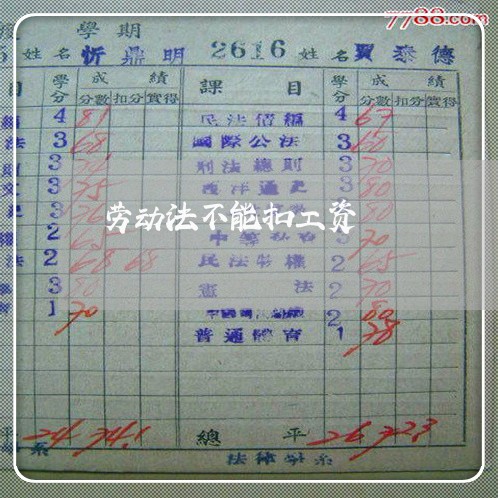 7788.com
學期
姓名 忻鼎明 2616 姓名 賈泰德
目 學分 成績 課目 學分 成績
分數 扣分 實得 分數 扣分 實得
4 81 民法債編 4 67
法 3 68 國際公法 3 60
3 刑法總則 3 70
3 75 西洋通史 3 80
3 80
劳动法不能扣工资
2 65 70
法 2 68 68 民法物權 2 65
3 80 憲法 2 70
1 70 2 80
普通體育 1 78
平 24 74.1 總平 26 72.3
系 法律學系